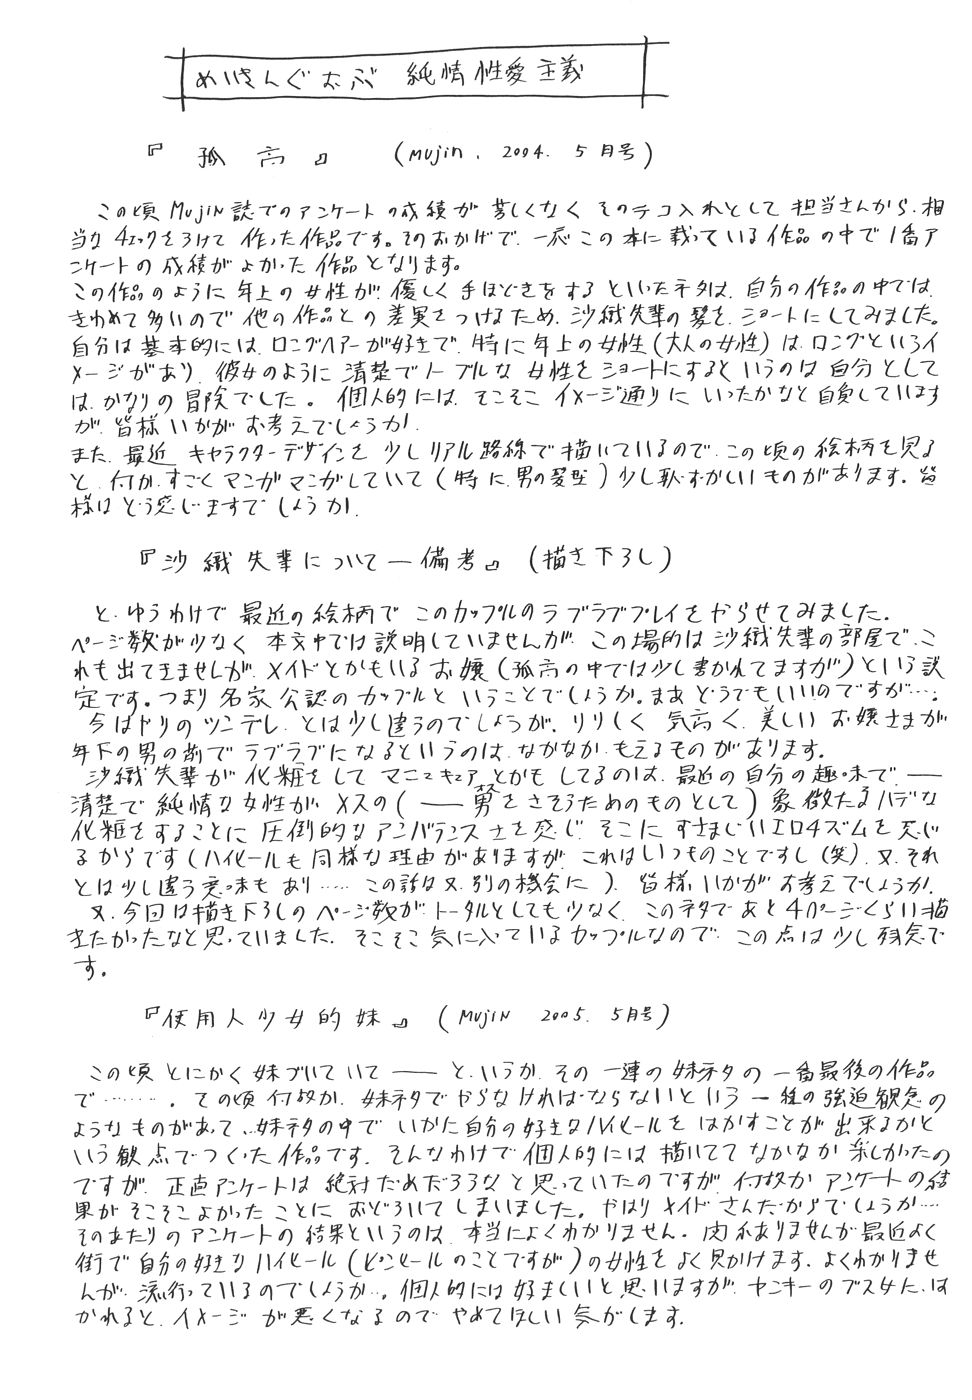 めいきんぐおぶ 純情性愛主義
『孤高』 (Mujin. 2004. 5月号)
この頃 MUJIN誌でのアンケートの成績が 芳しくなく そのテコ入れとして 担当さんから、相
当なチェックをうけて 作った作品です。そのおかげで、一応 この本に載っている作品の中で1番ア
ンケートの成績がよかった作品となります。
この作品のように 年上の女性が、優しく手ほどきをするといったネタは、自分の作品の中では、
きわめて多いので 他の作品との差異をつけるため、沙織先輩の髪を、ショートにしてみました。
自分は 基本的には、ロングヘアーが好きで、特に年上の女性(大人の女性)は、ロングというイ
メージがあり、彼女のように 清楚でノーブルな 女性をショートにするというのは 自分として
は、かなりの冒険でした。 個人的には、そこそこ イメージ通りに いったかなと自負しています
が、皆様 いかがお考えでしょうか。
また、最近 キャラクターデザインを 少しリアル路線で描いているので、この頃の絵柄を見る
と、何か、すごくマンガマンガしていて(特に、男の髪型)少し恥ずかしいものがあります。皆
様は どう感じますでしょうか。
『沙織先輩について―備考』 (描き下ろし)
と、ゆうわけで 最近の絵柄で このカップルのラブラブプレイをやらせてみました。
ページ数が少なく 本文中では説明していませんが、この場所は 沙織先輩の部屋で、こ
れも出てきませんが、メイドとかもいる お嬢(孤高の中では少し書かれてますが)という設
定です。つまり 名家公認のカップルと いうことでしょうか。まあ どうでもいいのですが…。
今はやりのツンデレ とは少し違うのでしょうが、りりしく 気高く、美しい お嬢さまが
年下の男の前で ラブラブになるというのは、なかなか、もえるものがあります。
沙織先輩が 化粧をして マニュキュアとかも してるのは、最近の自分の趣味で、――
清楚で 純情な女性が、メスの(――男をさそうためのものとして)象徴たるハデな
化粧をすることに 圧倒的なアンバランスさを感じ、そこに すさまじいエロチズムを 感じ
るからです(ハイヒールも 同様な理由がありますが、これはいつものことですし(笑)、又、それ
とは少し違う意味も あり…… この話は 又、別の機会に)。皆様、いかがお考えでしょうか。
又、今回は描き下ろしの ページ数が、トータルとしても少なく、このネタであと4ページくらい描
きたかったなと思っていました。そこそこ気に入っているカップルなので、この点は少し残念で
す。
『使用人少女的妹』 (MUJIN 2005. 5月号)
この頃 とにかく妹づいていて――と、いうか、その一連の妹ネタの一番最後の作品
で………。その頃 何故か、妹ネタで やらなければならないという 一種の強迫観念の
ようなものがあって、妹ネタの中で いかに自分の好きなハイヒールを はかすことが出来るかと
いう観点でつくった作品です。そんなわけで個人的には 描いてて なかなか楽しかったの
ですが、正直アンケートは 絶対だめだろうなと思っていたのですが、何故かアンケートの結
果が そこそこよかったことに おどろいてしまいました。やはりメイドさんだからでしょうか…
そのあたりのアンケートの結果というのは、本当によくわかりません。関係ありませんが最近よく
街で自分の好きなハイヒール(ピンヒールのことですが)の女性をよく見かけます。よくわかりませ
んが、流行っているのでしょうか。個人的には好ましいと思いますが、ヤンキーのブス女に、は
かれると、イメージ が悪くなるので やめてほしい気がします。